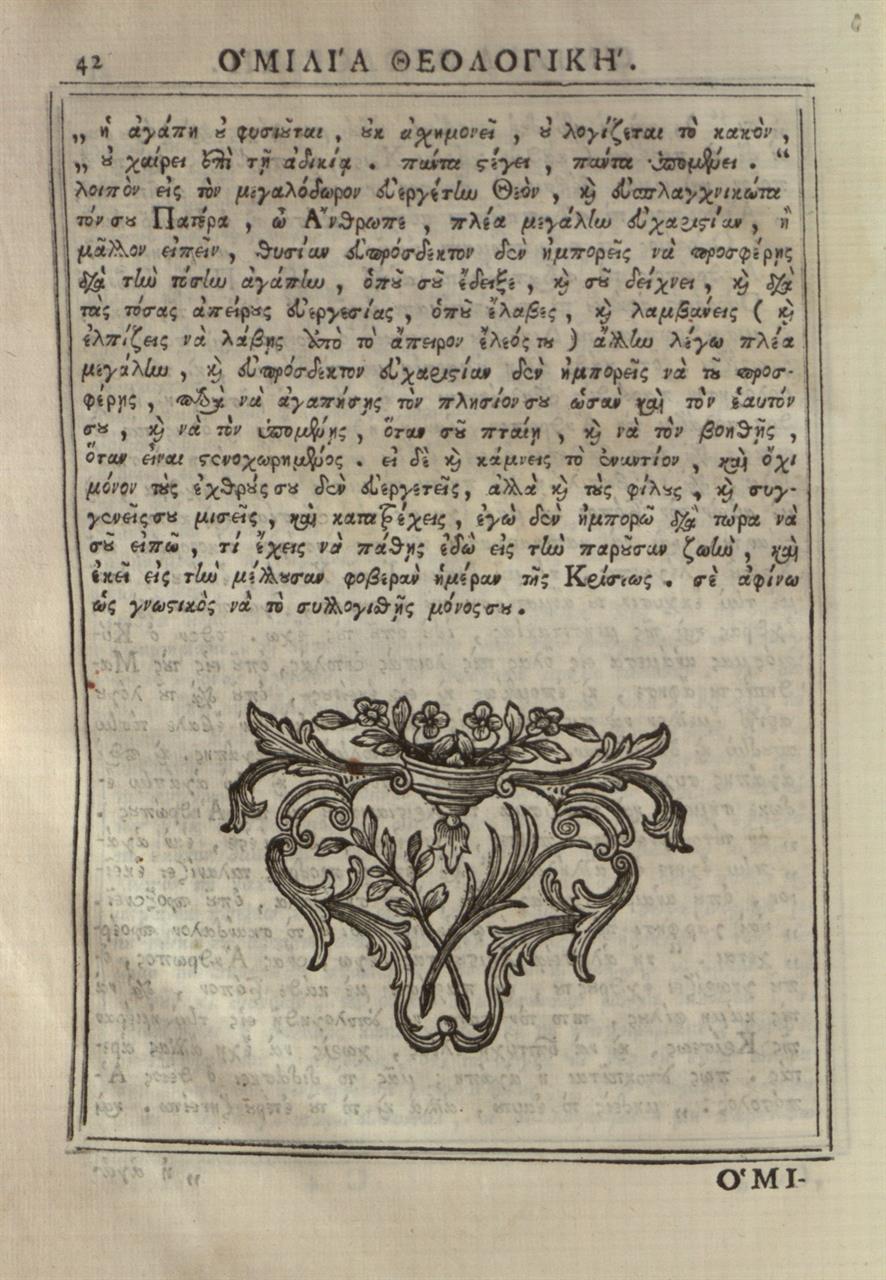 42 ὉΜΙΛΙΆ ΘΕΟΛΟΓΙΚΉ.
„ ἡ ἀγάπη ȣ φυσιοῦται, ȣκ ἀχημονεῖ, ȣ λογίζεται τὸ κακὸν,
„ ȣ χαίρει ἐπὶ τῇ ἀδικίᾳ. πάντα ϛέγει, πάντα ὑπομένει. “
λοιπὸν εἰς τὸν μεγαλόδωρον εὐεργέτην Θεὸν, ϗ εὐσπλαγχνικώτα
τόν σȣ Πατέρα, ὦ Ἄνθρωπε, πλέα μεγάλην εὐχαριϛίαν, ἢ
μᾶλλον εἰπεῖν, θυσίαν εὐπρόσδεκτον δὲν ἠμπορεῖς νὰ προσφέρῃς
διὰ τὴν τόσην ἀγάπην, ὁποῦ σοῦ ἔδειξε, ϗ σοῦ δείχνει, ϗ διὰ
τὰς τόσας ἀπείρȣς εὐεργεσίας, ὁποῦ ἔλαβες, ϗ λαμβάνεις ( ϗ
ἐλπίζεις νὰ λάβῃς ὑπὸ τὸ ἄπειρον ἔλεός τȣ ) ἄλλην λέγω πλέα
μεγάλην, ϗ εὐπρόσδεκτον εὐχαριϛίαν δὲν ἠμπορεῖς νὰ τοῦ προσ-
φέρῃς, παρὰ νὰ ἀγαπήσῃς τὸν πλησίον σȣ ὡσὰν καὶ τὸν ἑαυτόν
σȣ, ϗ νὰ τὸν ὑπομένῃς, ὅταν σοῦ πταίῃ, ϗ νὰ τὸν βοηθῇς,
ὅταν εἶναι ϛενοχωρημένος. εἰ δὲ ϗ κάμνεις τὸ ἐναντίον, καὶ ὄχι
μόνον τοὺς ἐχθρούς σȣ δὲν εὐεργετεῖς, ἀλλὰ ϗ τοὺς φίλȣς, ϗ συγ-
γενεῖς σȣ μισεῖς, καὶ κατατρέχεις, ἐγὼ δὲν ἠμπορῶ διὰ τώρα νὰ
σοῦ εἰπῶ, τί ἔχεις νὰ πάθῃς ἐδὼ εἰς τὴν παροῦσαν ζωὴν, καὶ
ἐκεῖ εἰς τὴν μέλλȣσαν φοβερὰν ἡμέραν τῆς Κρίσεως. σὲ ἀφίνω
ὡς γνωϛικὸς νὰ τὸ συλλογιθῇς μόνος σȣ.
ὉΜΙ-